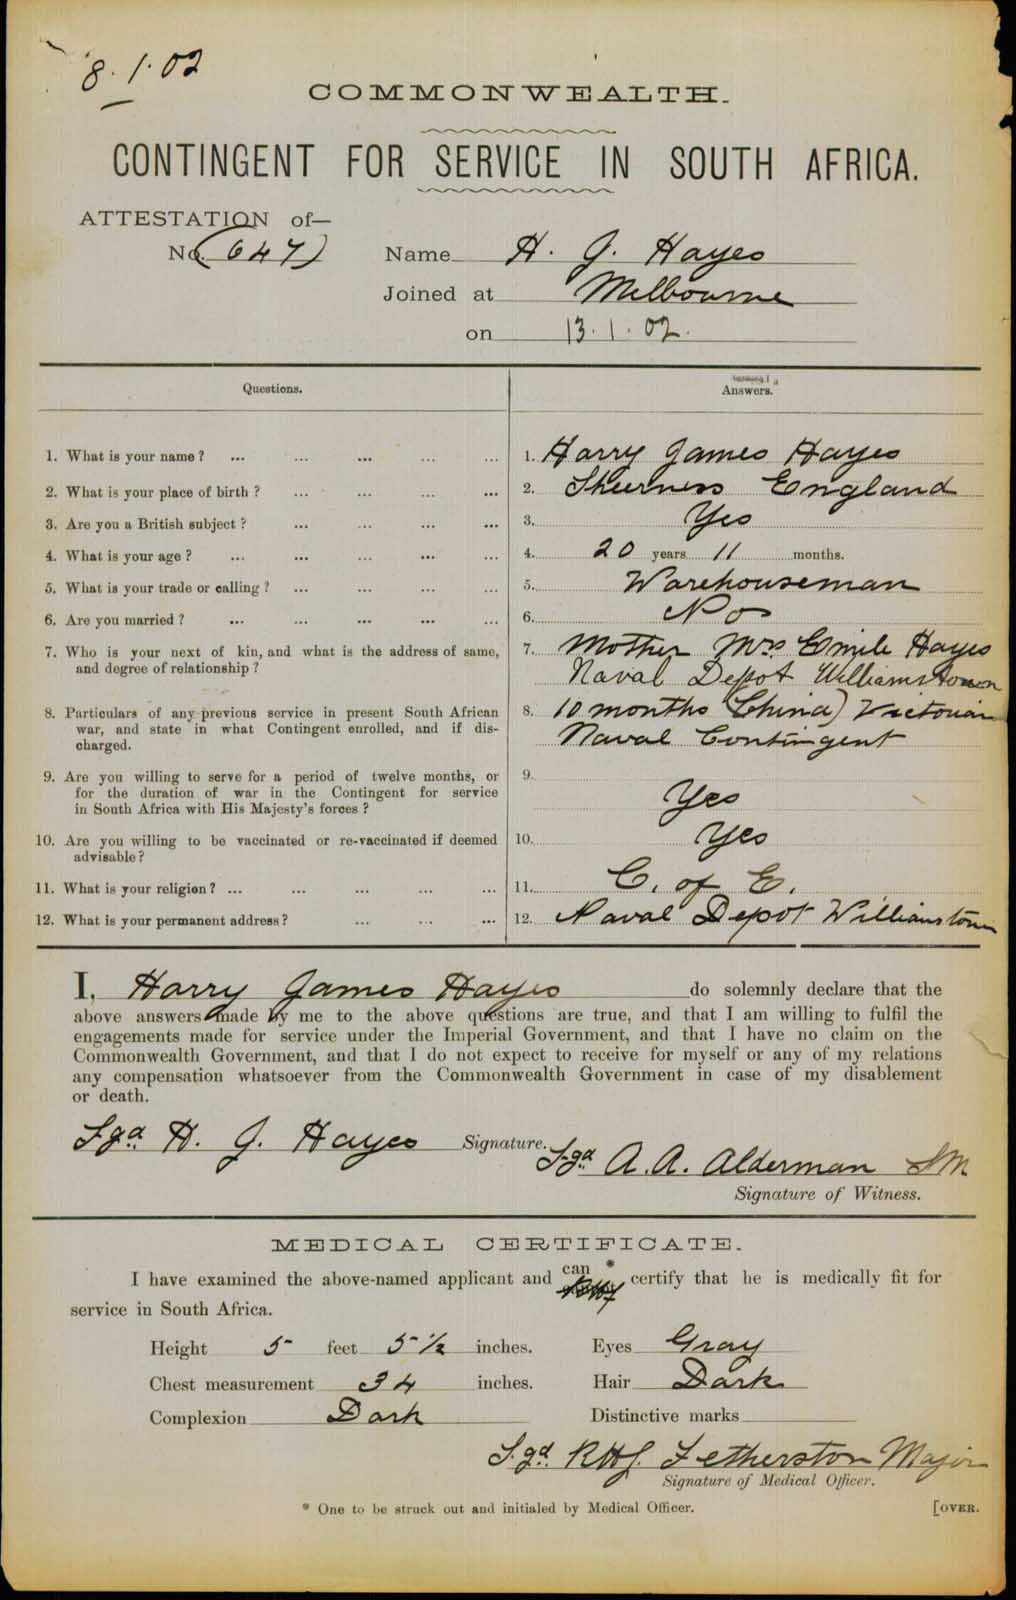 8.1.02
COMMONWEALTH.
CONTINGENT FOR SERVICE IN SOUTH AFRICA.
ATTESTATION of—
No. (647) Name H. J. Hayes
Joined at Melbourne
on 13.1.02.
Questions. Answers.
1. What is your name? ... ... ... ... ... 1. Harry James Hayes
2. What is your place of birth? ... ... ... ... 2. Sheerness England
3. Are you a British subject? ... ... ... ... 3. Yes
4. What is your age? ... ... ... ... ... 4. 20 years 11 months.
5. What is your trade or calling? ... ... ... ... 5. Warehouseman
6. Are you married? ... ... ... ... ... 6. No
7. Who is your next of kin, and what is the address of same, 7. Mother Mrs Emile Hayes
and degree of relationship? Naval Depot Williamstown
8. Particulars of any previous service in present South African 8. 10 months (China) Victorian
war, and state in what Contingent enrolled, and if dis- Naval Contingent
charged.
9. Are you willing to serve for a period of twelve months, or 9.
for the duration of war in the Contingent for service Yes
in South Africa with His Majesty's forces?
10. Are you willing to be vaccinated or re-vaccinated if deemed 10. Yes
advisable?
11. What is your religion? ... ... ... ... ... 11. C. of E.
12. What is your permanent address? ... ... ... 12. Naval Depot Williamstown
I, Harry James Hayes do solemnly declare that the
above answers made by me to the above questions are true, and that I am willing to fulfil the
engagements made for service under the Imperial Government, and that I have no claim on the
Commonwealth Government, and that I do not expect to receive for myself or any of my relations
any compensation whatsoever from the Commonwealth Government in case of my disablement
or death.
Sgd H. J. Hayes Signature.
Sgd A. A. Alderman SM
Signature of Witness.
MEDICAL CERTIFICATE.
I have examined the above-named applicant and can * certify that he is medically fit for
service in South Africa.
Height 5 feet 5 1/2 inches. Eyes Gray
Chest measurement 34 inches. Hair Dark
Complexion Dark Distinctive marks
Sgd. RHJ. Fetherston Major
Signature of Medical Officer.
* One to be struck out and initialed by Medical Officer. [OVER.